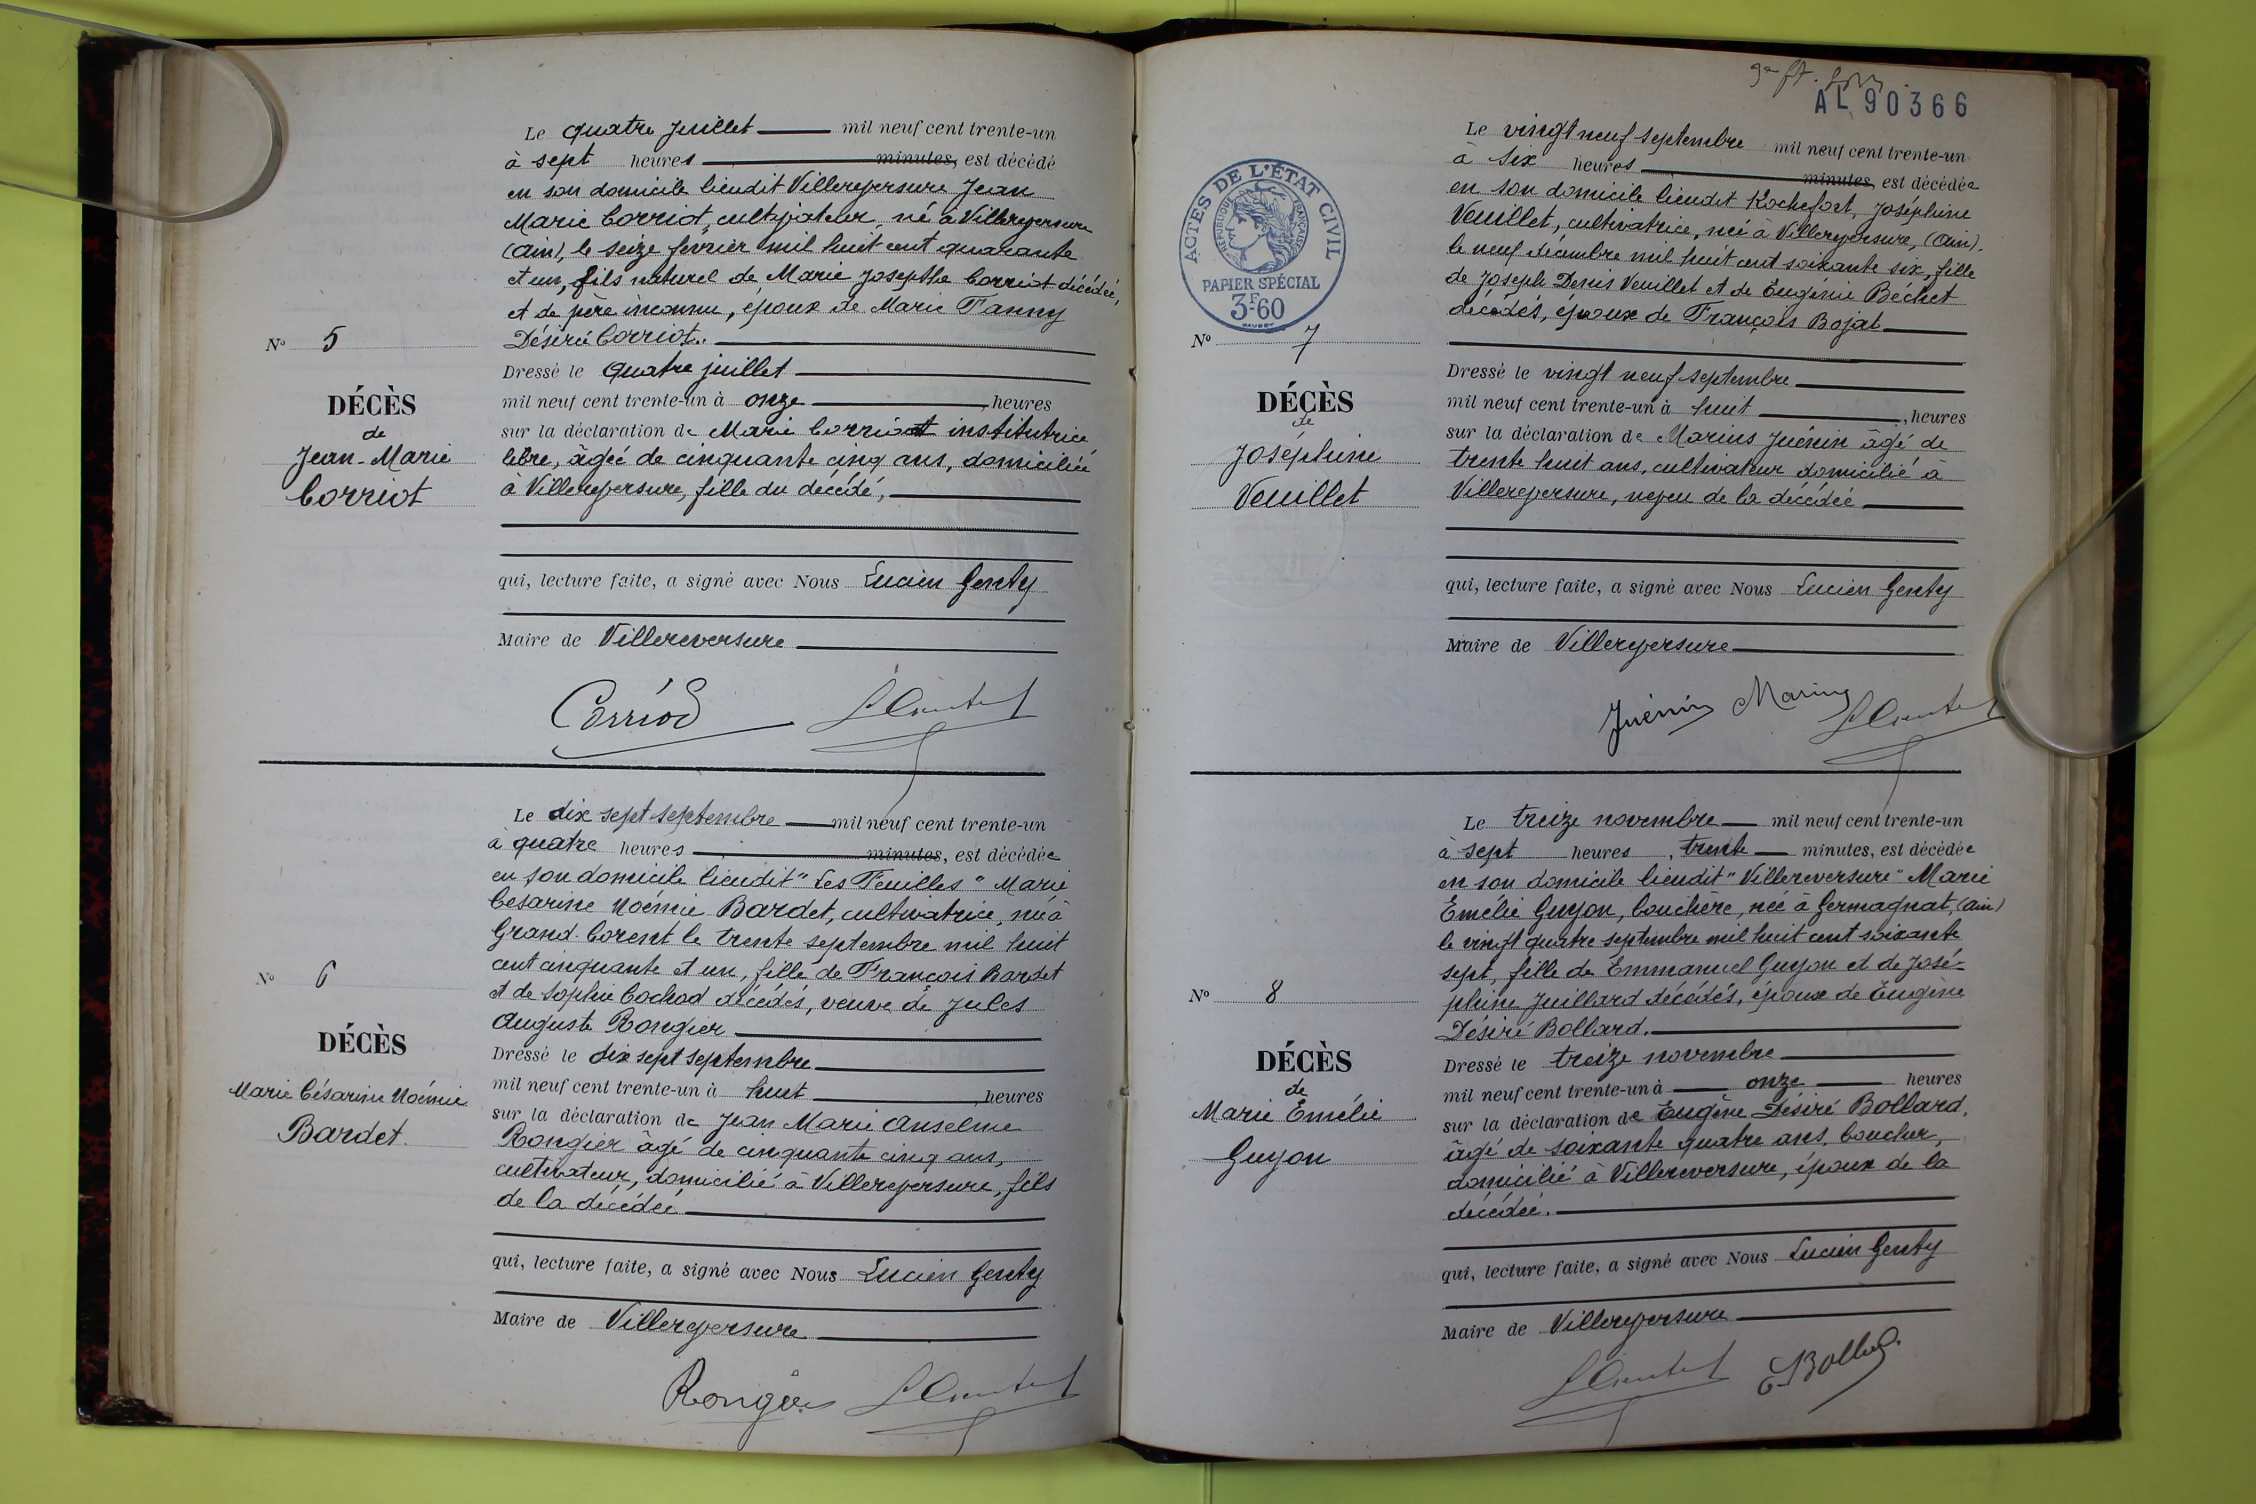 Le quatre juillet mil neuf cent trente-un
à sept heures minutes, est décédé
en son domicile lieudit Villereversure Jean
Marie Corriot, cultivateur, né à Villereversure
(Ain), le seize février mil huit cent quarante
et un, fils naturel de Marie Josephe Corriot décédée,
et de père inconnu, époux de Marie Fanny
Désirée Corriot.
N° 5
DÉCÈS
de
Jean-Marie
Corriot
Dressé le quatre juillet
mil neuf cent trente-un à onze, heures
sur la déclaration de Marie Corriot institutrice
libre, âgée de cinquante cinq ans, domiciliée
à Villereversure, fille du décédé,
qui, lecture faite, a signé avec Nous Lucien Genty
Maire de Villereversure
Corriod
Le dix sept septembre mil neuf cent trente-un
à quatre heures minutes, est décédée
en son domicile lieudit "Les Feuilles" Marie
Césarine Noémie Bardet, cultivatrice, née à
Grand-Corent le trente septembre mil huit
cent cinquante et un, fille de François Bardet
et de Sophie Cochod décédés, veuve de Jules
Auguste Rongier
N° 6
DÉCÈS
Marie Césarine Noémie
Bardet.
Dressé le dix sept septembre
mil neuf cent trente-un à huit, heures
sur la déclaration de Jean Marie Anselme
Rongier âgé de cinquante cinq ans,
cultivateur, domicilié à Villereversure, fils
de la décédée
qui, lecture faite, a signé avec Nous Lucien Genty
Maire de Villereversure
Rongier
AL 90366
ACTES DE L'ÉTAT CIVIL
RÉPUBLIQUE FRANÇAISE
PAPIER SPÉCIAL
3F60
Le vingt neuf septembre mil neuf cent trente-un
à six heures minutes, est décédée
en son domicile lieudit Rochefort, Joséphine
Veuillet, cultivatrice, née à Villereversure, (Ain).
le neuf décembre mil huit cent soixante six, fille
de Joseph Denis Veuillet et de Eugénie Béchet
décédés, épouse de François Bojat
N° 7
DÉCÈS
de
Joséphine
Veuillet
Dressé le vingt neuf septembre
mil neuf cent trente-un à huit, heures
sur la déclaration de Marius Juénin âgé de
trente huit ans, cultivateur domicilié à
Villereversure, neveu de la décédée
qui, lecture faite, a signé avec Nous Lucien Genty
Maire de Villereversure
Juénin Marius
Le treize novembre mil neuf cent trente-un
à sept heures, trente minutes, est décédée
en son domicile lieudit "Villereversure" Marie
Emélie Guyon, bouchère, née à Germagnat, (Ain)
le vingt quatre septembre mil huit cent soixante
sept, fille de Emmanuel Guyon et de José-
phine Juillard décédés, épouse de Eugène
Désiré Bollard.
N° 8
DÉCÈS
de
Marie Emélie
Guyon
Dressé le treize novembre
mil neuf cent trente-un à onze heures
sur la déclaration de Eugène Désiré Bollard,
âgé de soixante quatre ans, boucher,
domicilié à Villereversure, époux de la
décédée.
qui, lecture faite, a signé avec Nous Lucien Genty
Maire de Villereversure
E. Bollard